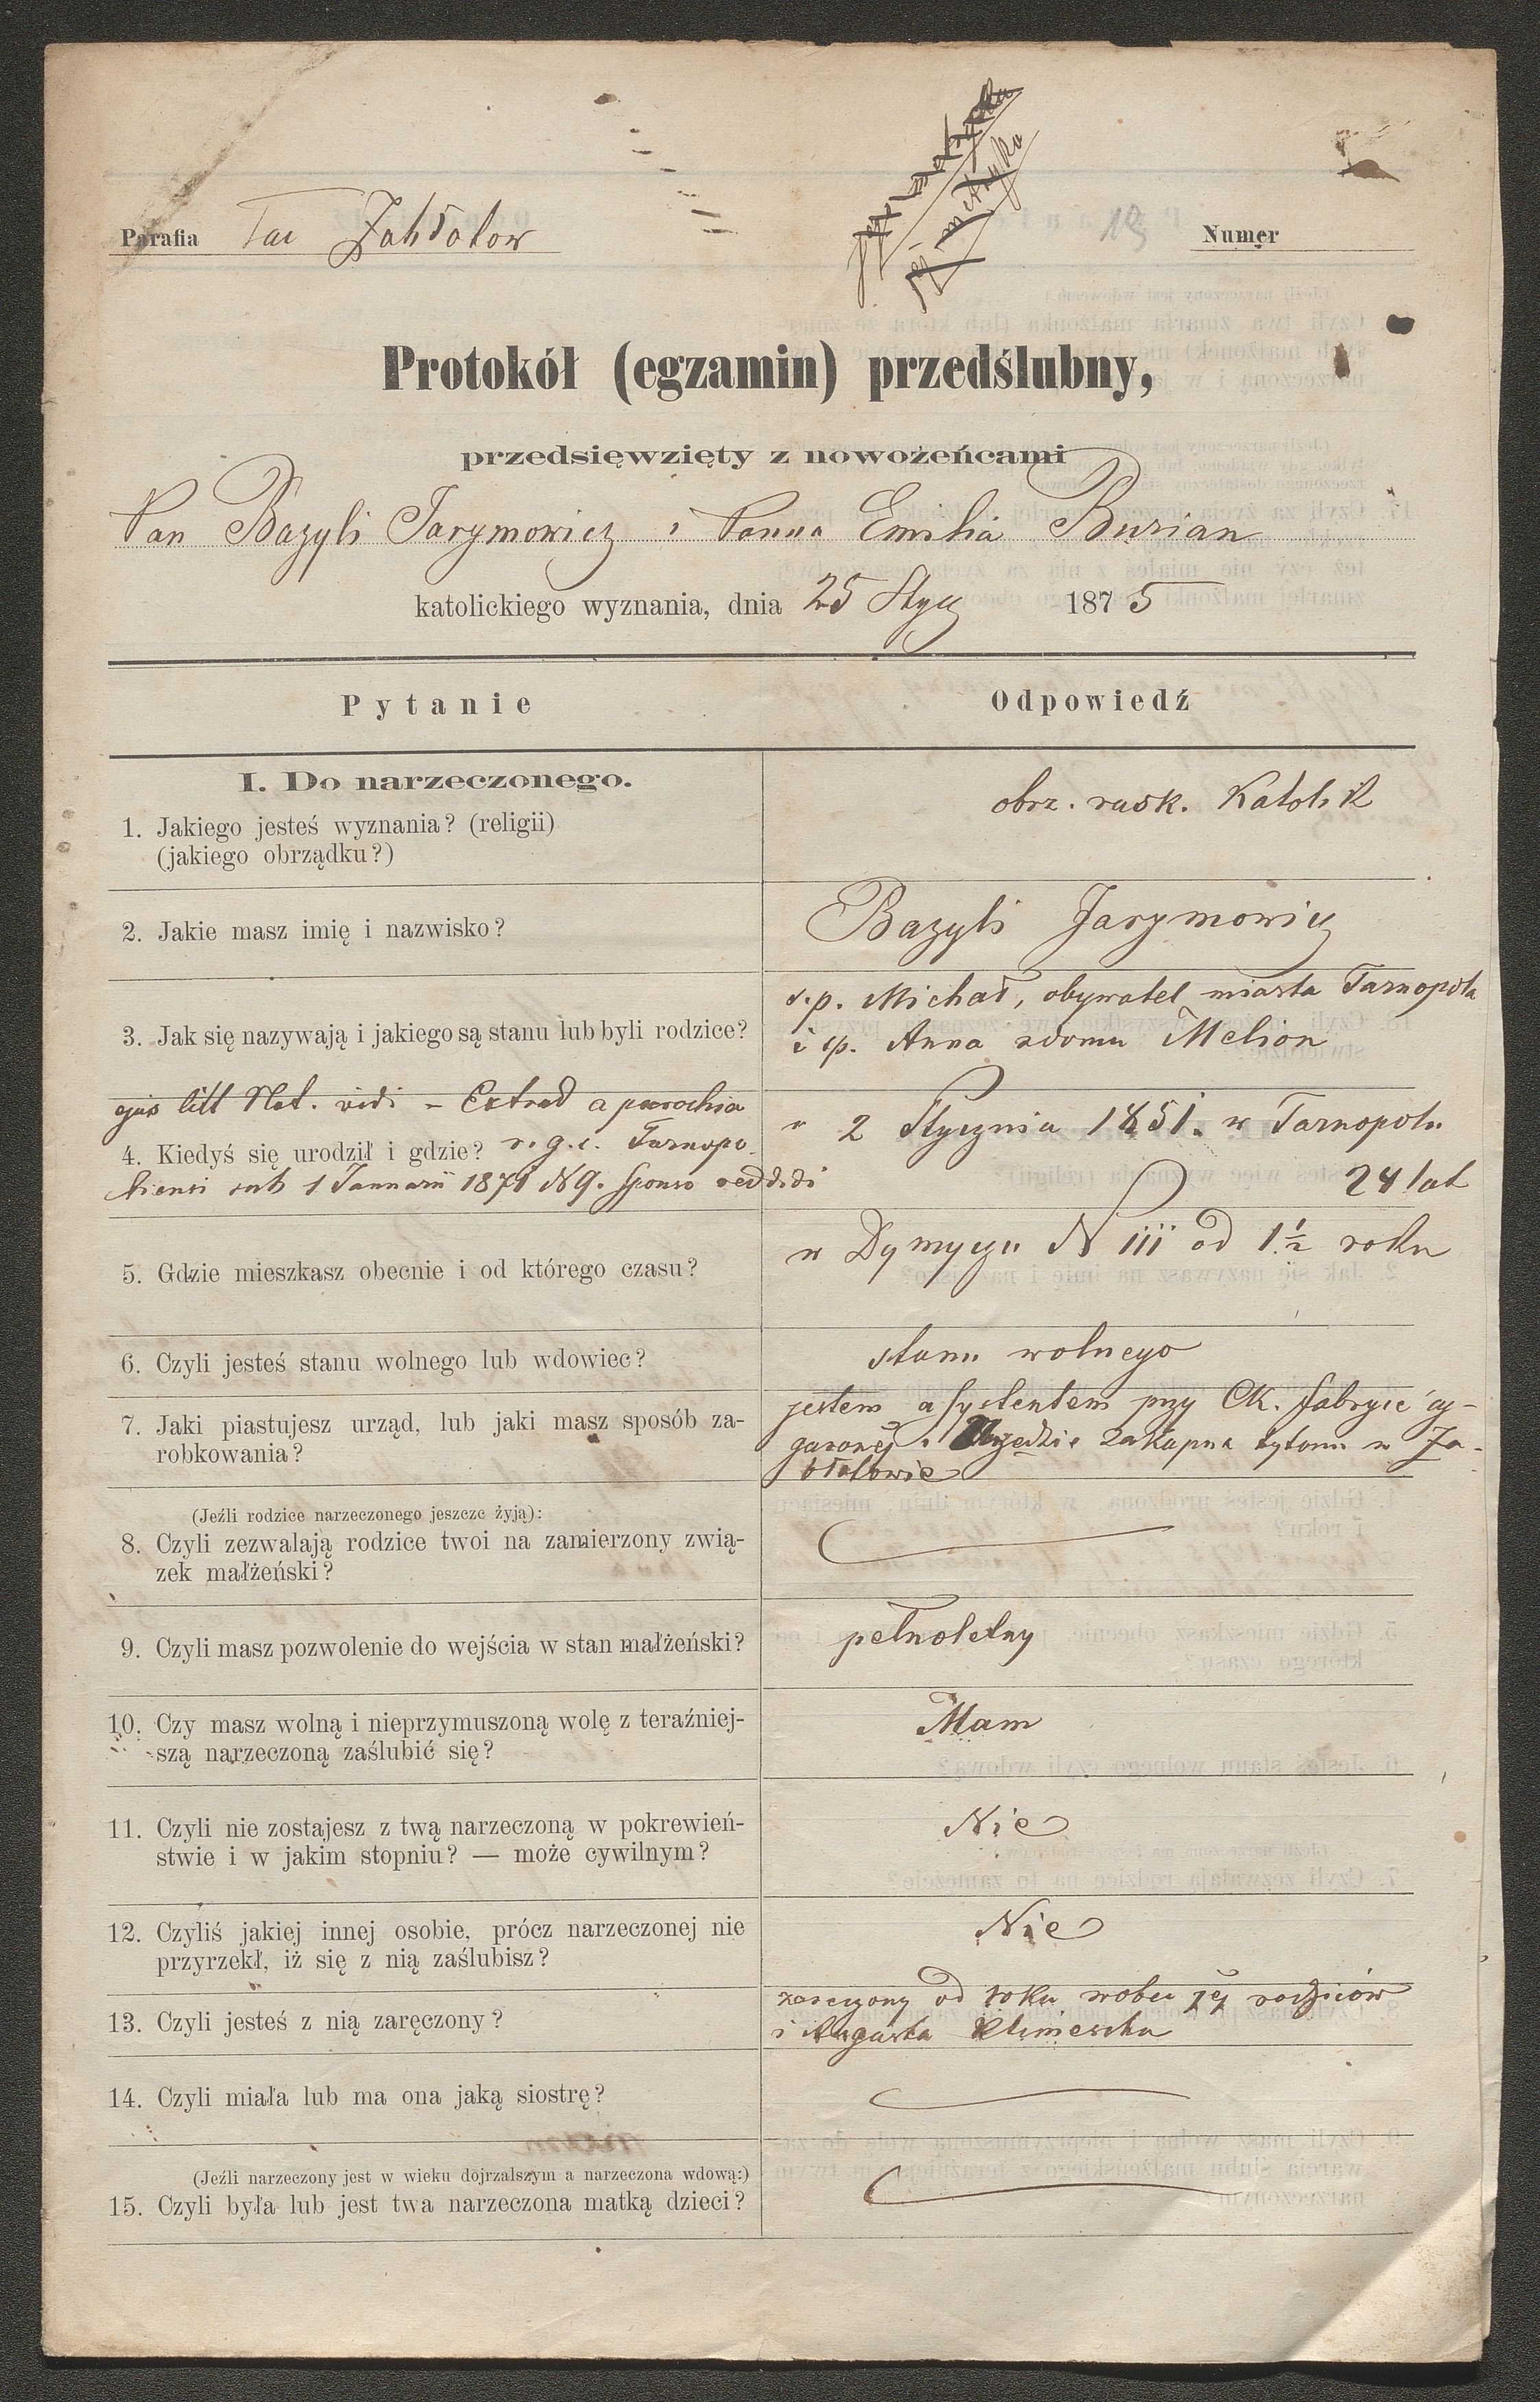 Parafia łac Zabłotow
jego metryka
jej metryka
19 Numer
Protokół (egzamin) przedślubny,
przedsięwzięty z nowożeńcami
Pan Bazyli Jarymowicz i Panna Emilia Burian
katolickiego wyznania, dnia 25 Stycz 1875
Pytanie
Odpowiedź
I. Do narzeczonego.
1. Jakiego jesteś wyznania? (religii)
(jakiego obrządku?)
obrz. rusk. Katolik
2. Jakie masz imię i nazwisko?
Bazyli Jarymowicz
3. Jak się nazywają i jakiego są stanu lub byli rodzice?
s.p. Michał, obywatel miasta Tarnopola
i sp. Anna z domu Melion
ejus litt Nat. vidi - Extrad a parochia
4. Kiedyś się urodził i gdzie? r. g. c. Tarnopo-
liensi sub 1 Januarii 1871 N 9. sponso reddidi
2 Stycznia 1851. w Tarnopolu
24 lat
5. Gdzie mieszkasz obecnie i od którego czasu?
w Dymyczu N 111 od 1 1/2 roku
6. Czyli jesteś stanu wolnego lub wdowiec?
stanu wolnego
7. Jaki piastujesz urząd, lub jaki masz sposób za-
robkowania?
jestem asystentem przy CK. fabryce cy-
garowej i Urzędzie zakupna tytoniu w Za-
błotowie
(Jeźli rodzice narzeczonego jeszcze żyją):
8. Czyli zezwalają rodzice twoi na zamierzony zwią-
zek małżeński?
9. Czyli masz pozwolenie do wejścia w stan małżeński?
pełnoletny
10. Czy masz wolną i nieprzymuszoną wolę z teraźniej-
szą narzeczoną zaślubić się?
Mam
11. Czyli nie zostajesz z twą narzeczoną w pokrewień-
stwie i w jakim stopniu? — może cywilnym?
Nie
12. Czyliś jakiej innej osobie, prócz narzeczonej nie
przyrzekł, iż się z nią zaślubisz?
Nie
13. Czyli jesteś z nią zaręczony?
zaręczony od roku wobec jej rodziców
i Augusta Klimescha
14. Czyli miała lub ma ona jaką siostrę?
(Jeźli narzeczony jest w wieku dojrzalszym a narzeczona wdową:)
15. Czyli była lub jest twa narzeczona matką dzieci?